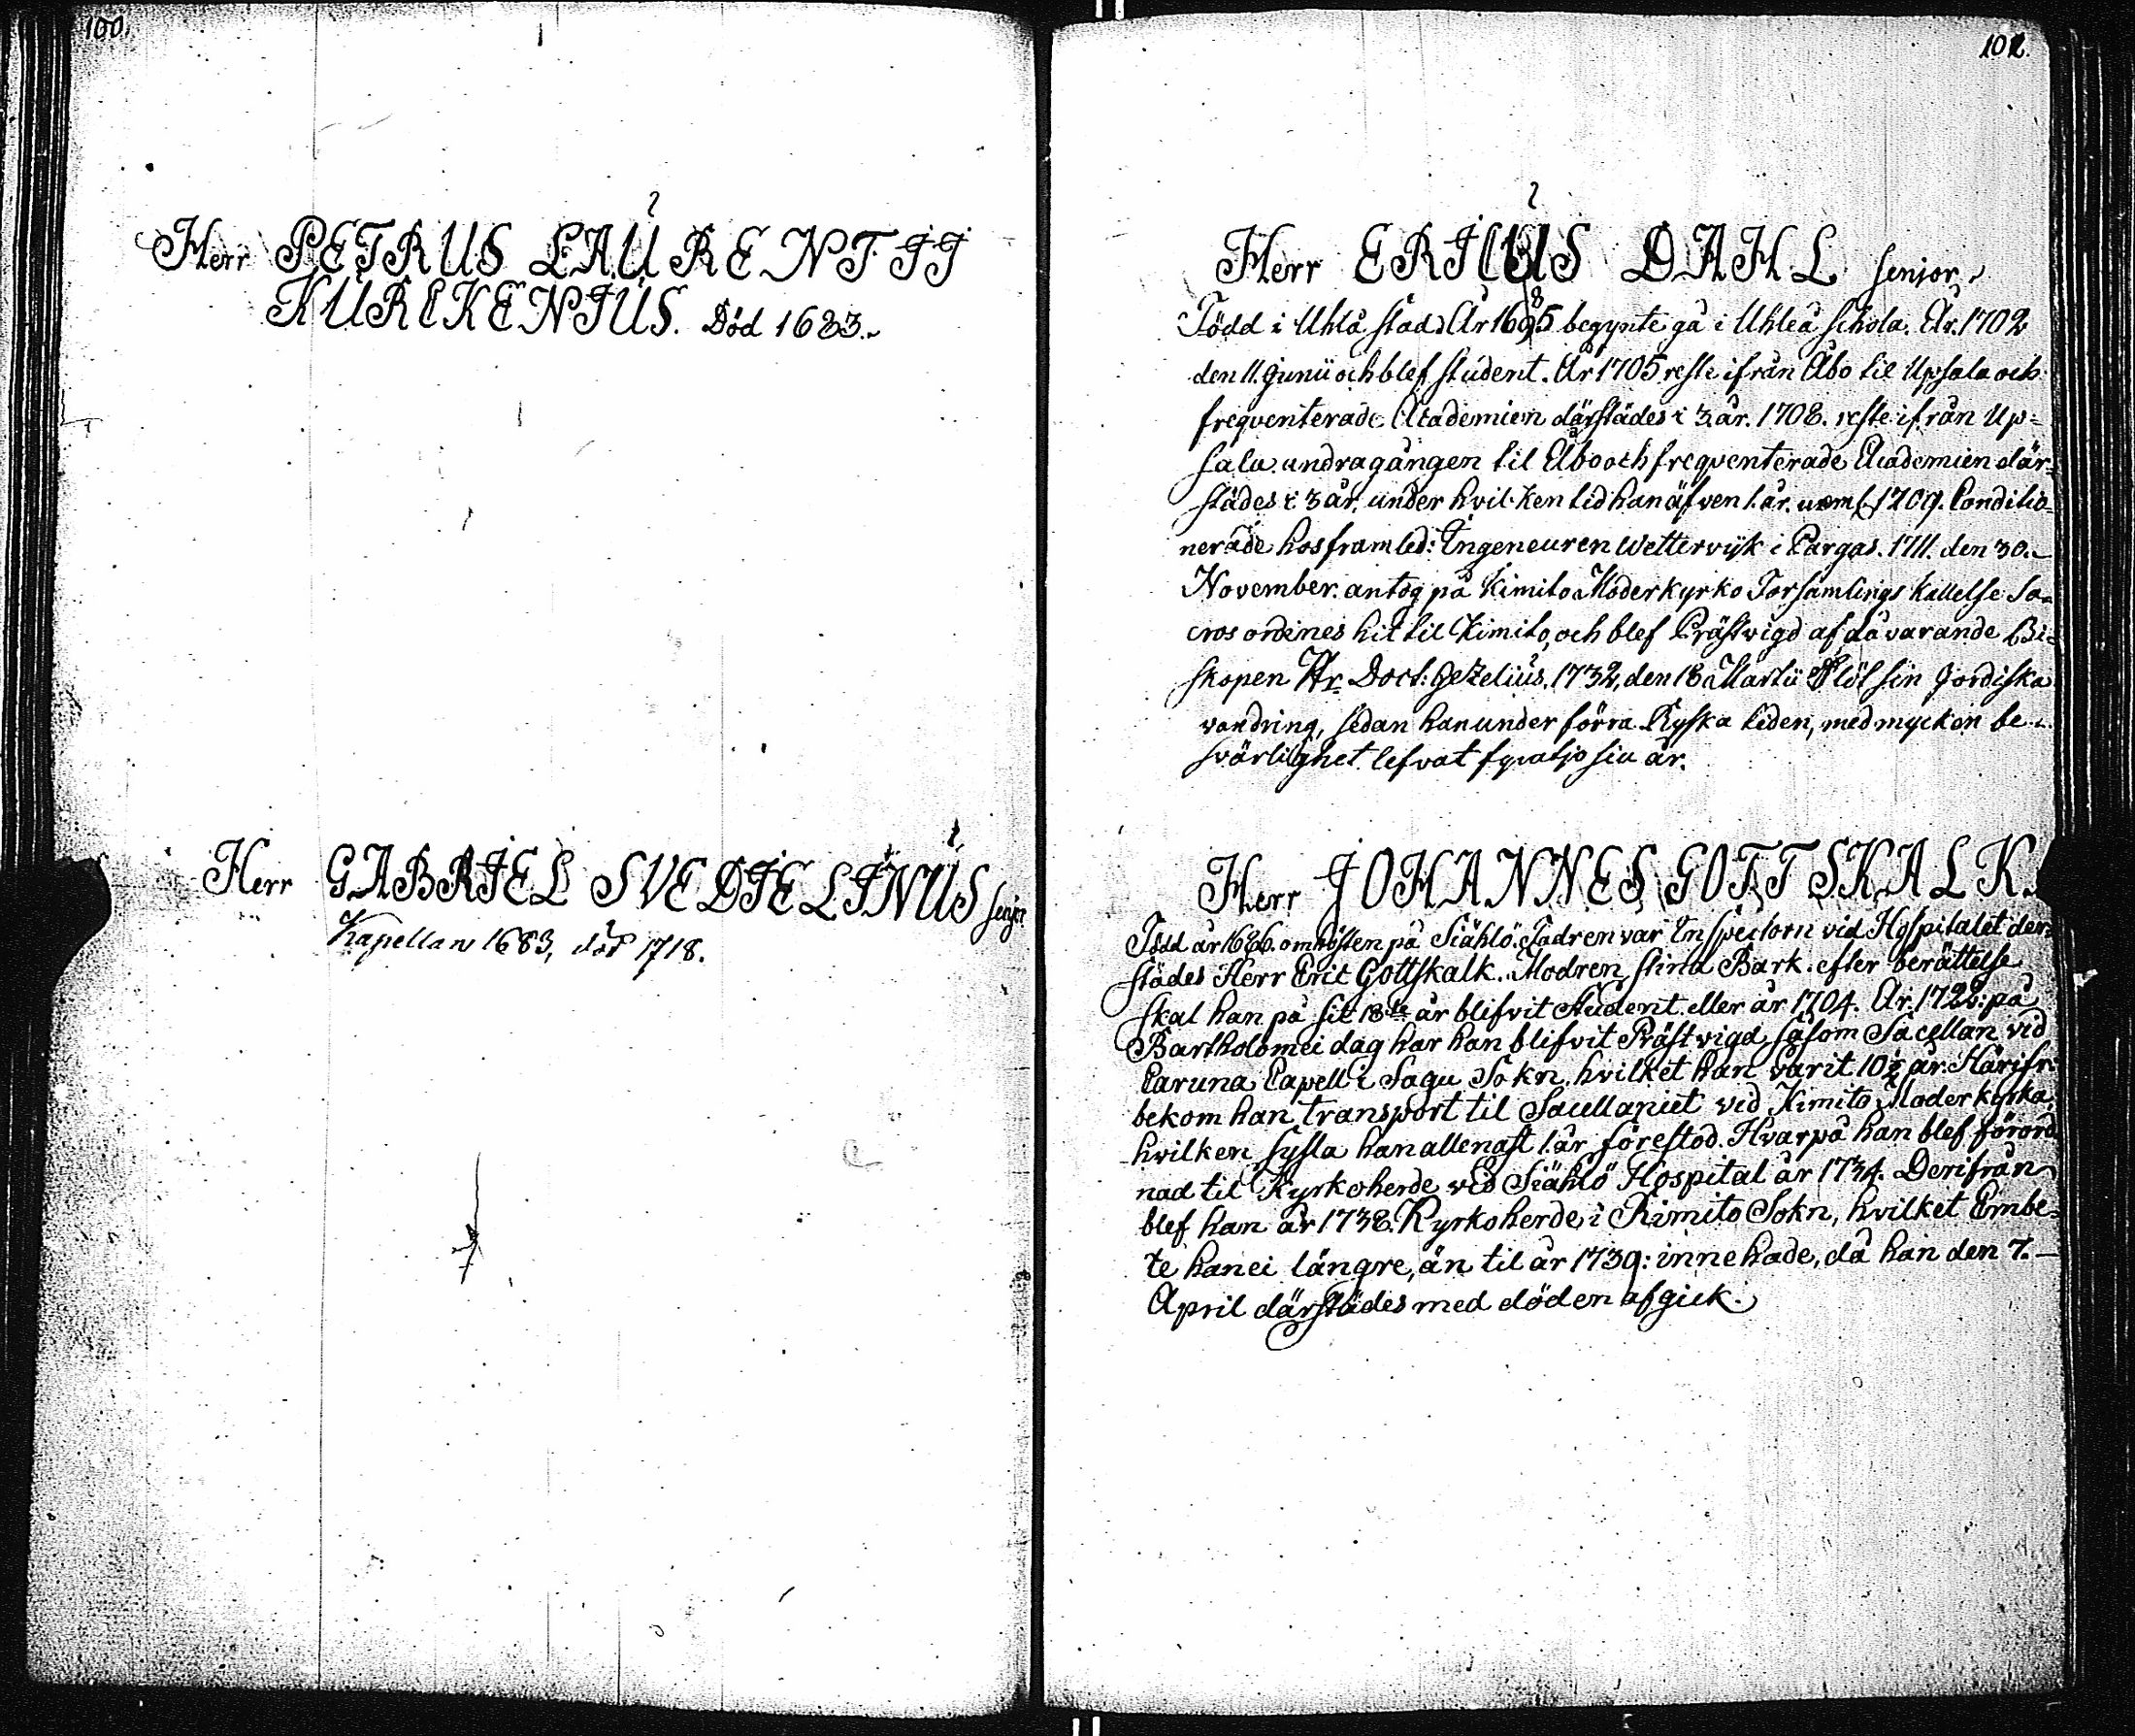 100.
Herr PETRUS LAURENTII
KURCKENIUS. Död 1683.
Herr GABRIEL SVEDIELINUS senjor
Kapellan 1683, död 1718.
101.
Herr ERICUS DAHL senjor
Född i Uhlå stad År 1685 begynte gå i Uhleå schola. År. 1702
den 11. Junii och blef student. År 1705 reste ifrån Åbo til Upsala och
freqventerade Academien därstädes i 3 år. 1708. reste ifrån Up=
sala andra gången til Åbo och freqventerade Academien där=
städes i 3 år, under hvilken tid han äfven 1. år. næml. 1709. Conditio=
nerade hos framled: Ingeneuren Wettervijk i Pargas. 1711. den 30.
November. antog på Kimito Moderkyrko Församlings kallelse Sa=
cros ordines hit til Kimito, och blef Prästvigd af då varande Bi=
skopen Hr Doct: Gezelius. 1732, den 18 Martii slöt sin jordiska
vandring, sedan han under förra Ryska tiden, med mycken be=
svärlighet lefvat fyratjo siu år.
Herr JOHANNES GOTTSKALK.
Född år 1686. om hösten på Siählö. Fadren var Inspectorn vid Hospitalet der=
städes Herr Eric Gottskalk. Modren Stina Bark. efter berättelse
skal han på sit 18de år blifvit Student eller år 1704. År. 1722: på
Bartholomei dag har han blifvit Prästvigd, såsom Sacellan vid
Caruna Capell i Sagu Sokn. hvilket han varit 10½ år. Härifr.
bekom han transport til Sacellaniet vid Kimito Moderkyrka,
hvilken sysla han allenast 1. år förestod. Hvarpå han blef förord=
nad til Kyrkoherde vid Siählö Hospital år 1734. Derifrån
blef han år 1738. Kyrkoherde i Rimito Sokn, hvilket Embe=
te han ei längre, än til år 1739: innehade, då han den 7.
April därstädes med döden afgick.